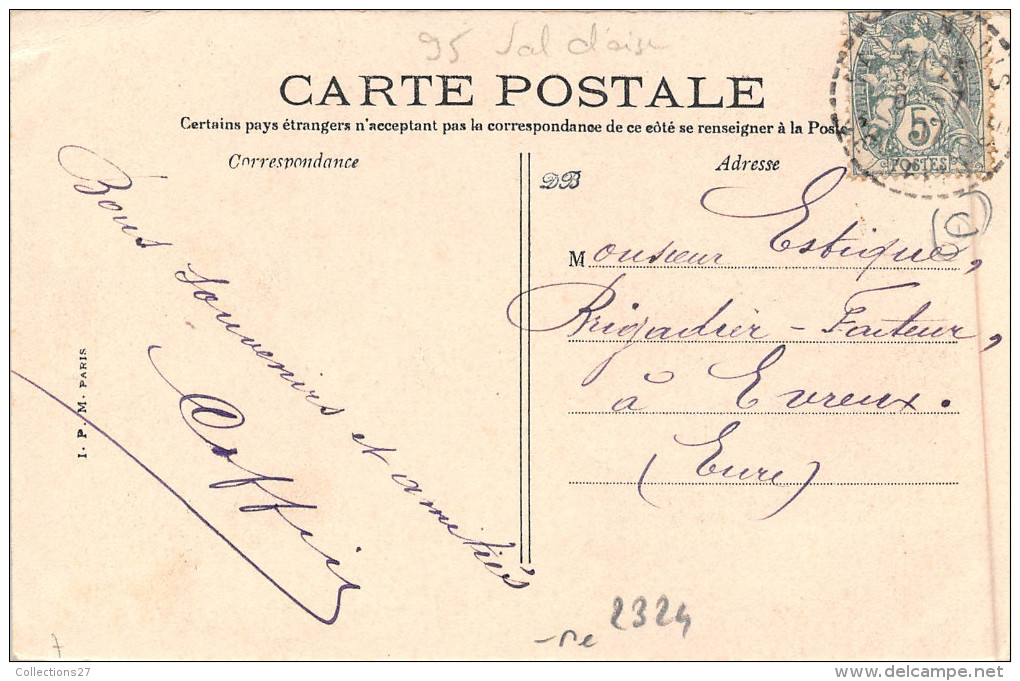 95 Val d'oise
CARTE POSTALE
Certains pays étrangers n'acceptant pas la correspondance de ce côté se renseigner à la Poste
Correspondance
Adresse
DB
5c
POSTES
Bons souvenirs et amitiés
Monsieur Estique,
Brigadier-Facteur,
à Evreux.
(Eure)
I. P. M. PARIS
2324
Collections27
www.delcampe.net